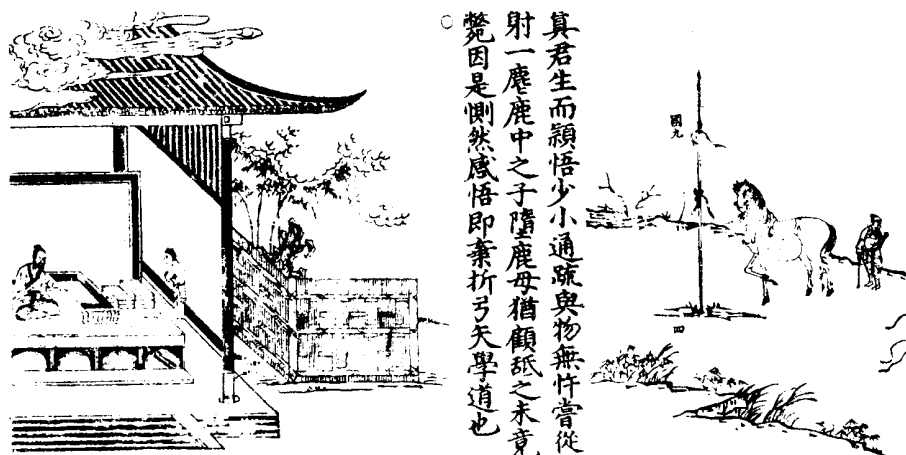 真君生而穎悟少小通疏與物無忤嘗從
射一麀鹿中之子墮鹿母猶顧舐之未竟
斃因是惻然感悟即棄折弓矢學道也
國九
四